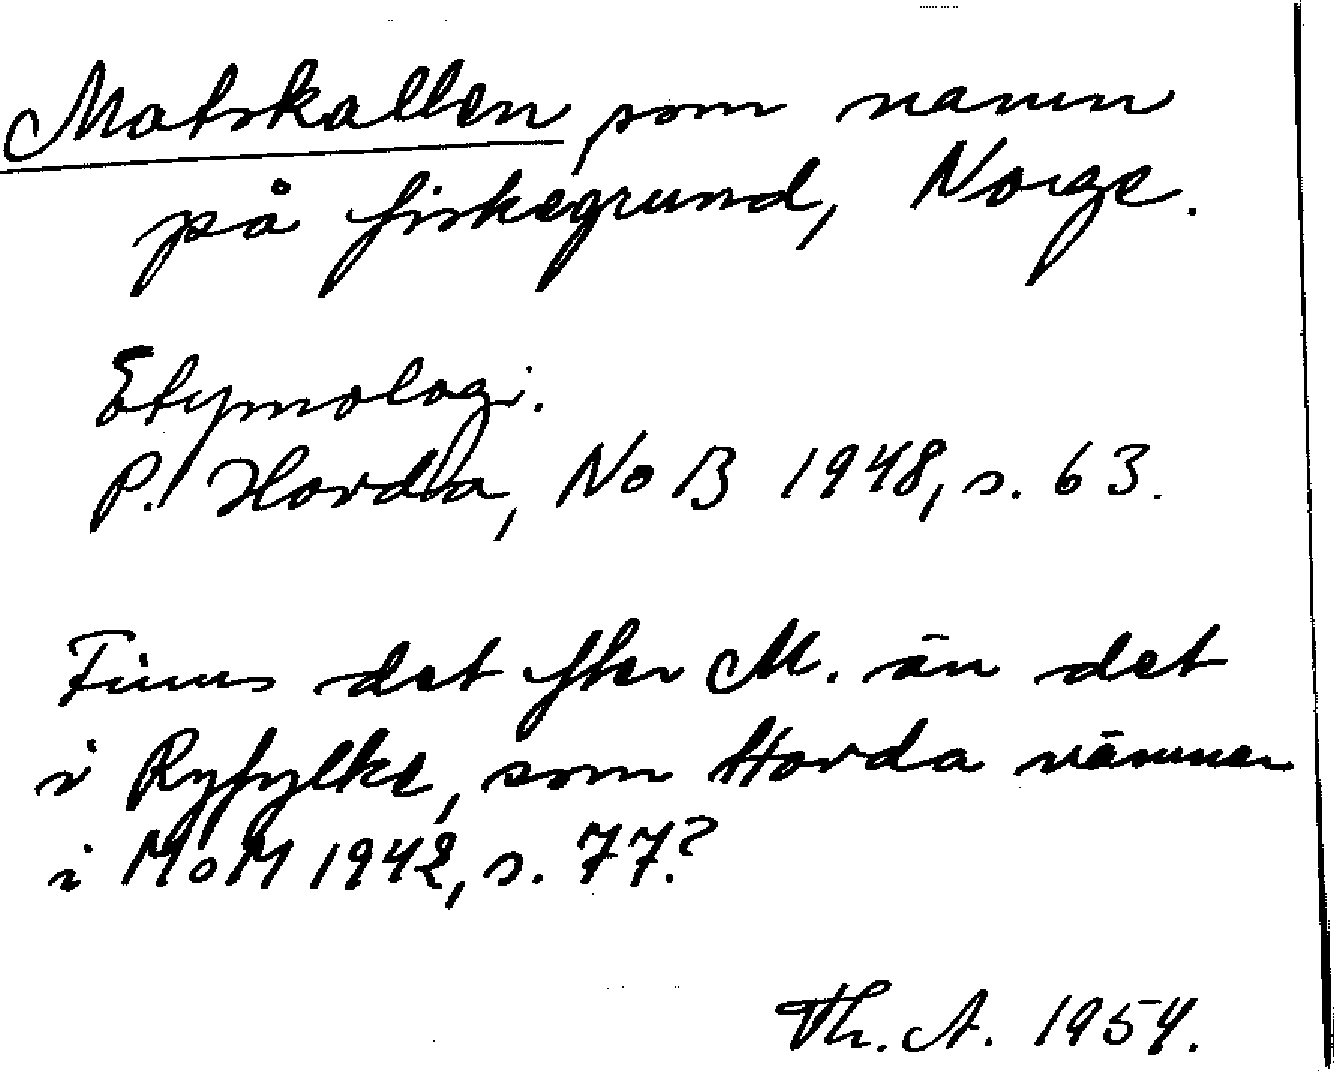 Matskallen som namn
på fiskegrund, Norge.
Etymologi.
P. Hovda, NoB 1948, s. 63.
Finns det fler M. än det
i Ryfylke, som Hovda nämner
i MoM 1942, s. 77?
Th. A. 1954.